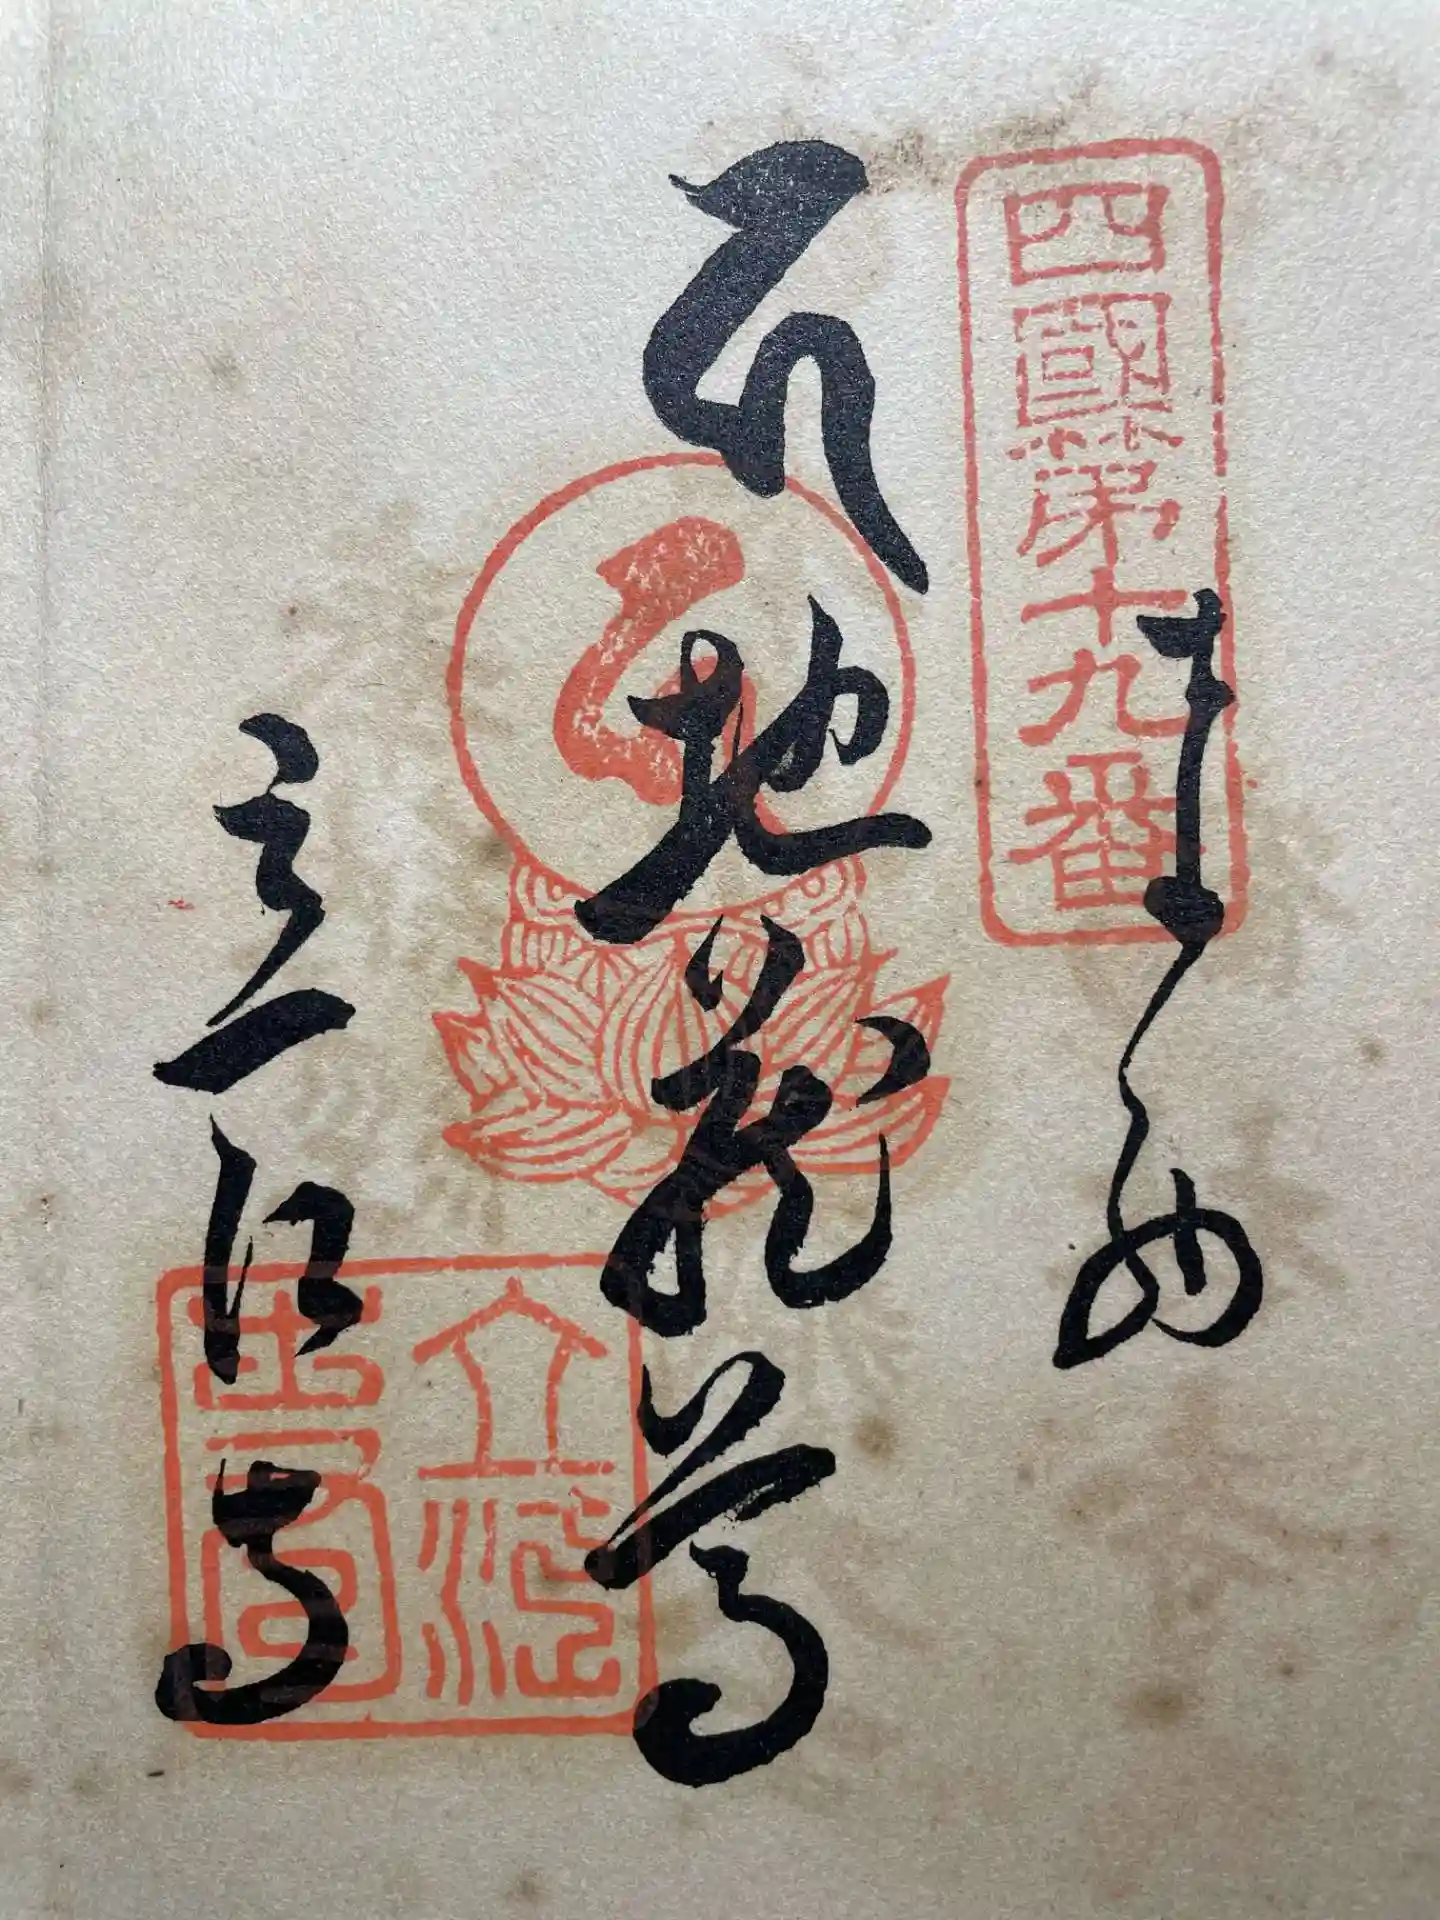 四國第十九番
奉納
𑖮
地蔵尊
立江寺
立江寺